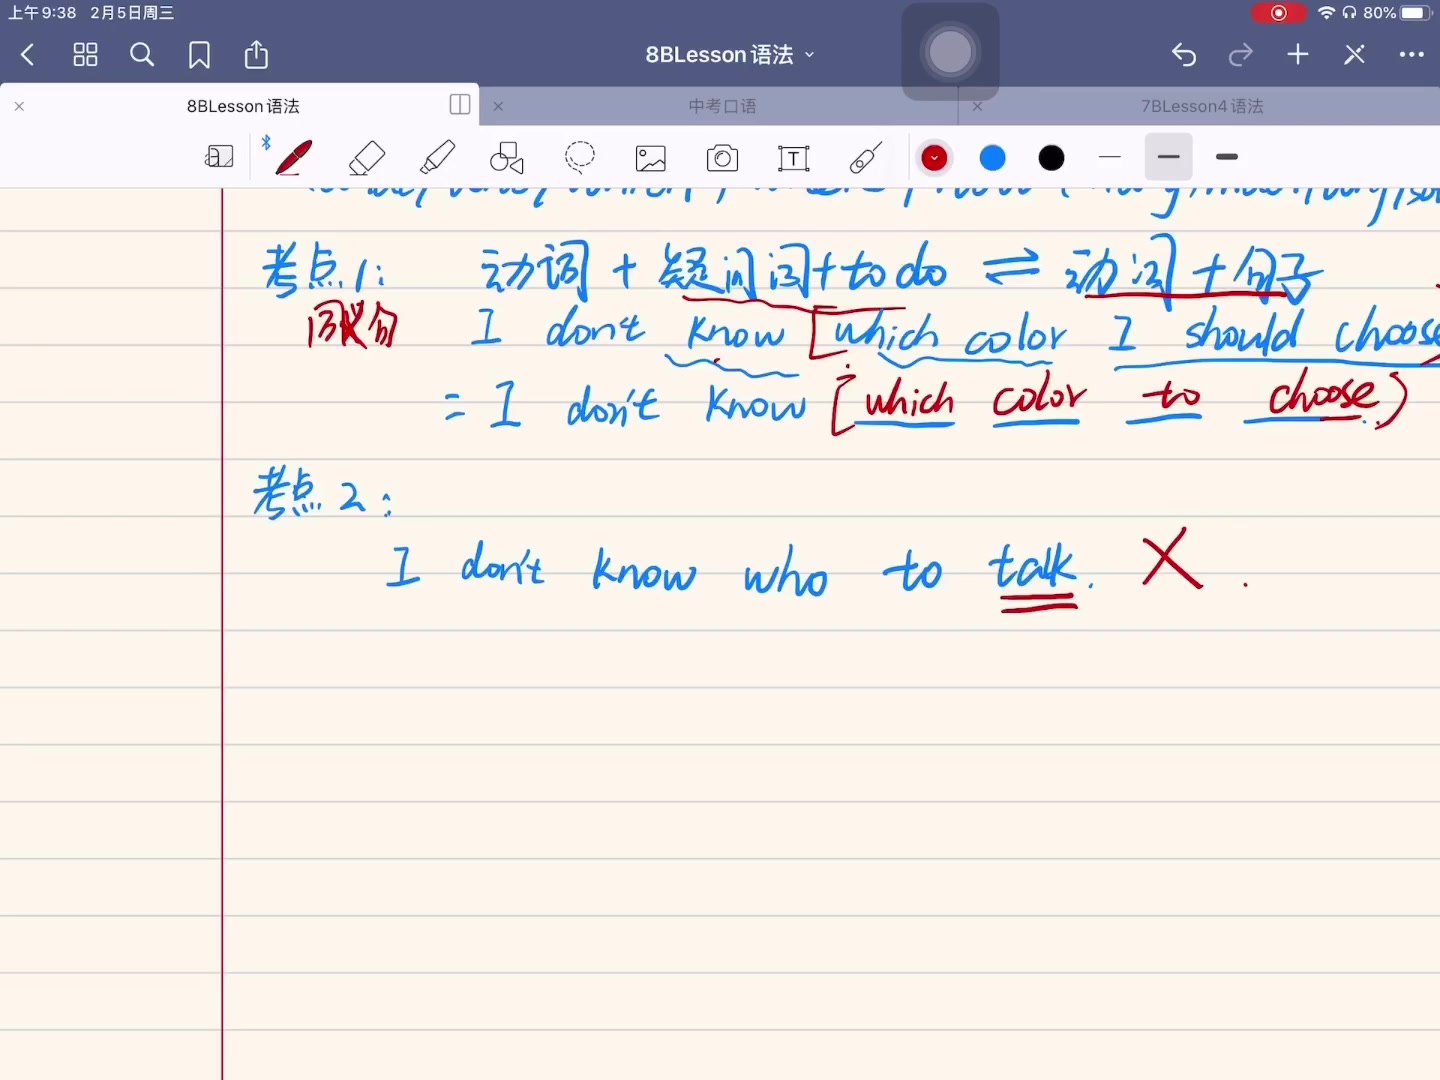 上午9:38 2月5日周三
80%
8BLesson 语法
8BLesson 语法
中考口语
7BLesson4 语法
考点1: 动词 + 疑问词+to do ⇌ 动词 + 句子
同义句 I don't know [which color I should choose
= I don't know [which color to choose)
考点2:
I don't know who to talk. X .